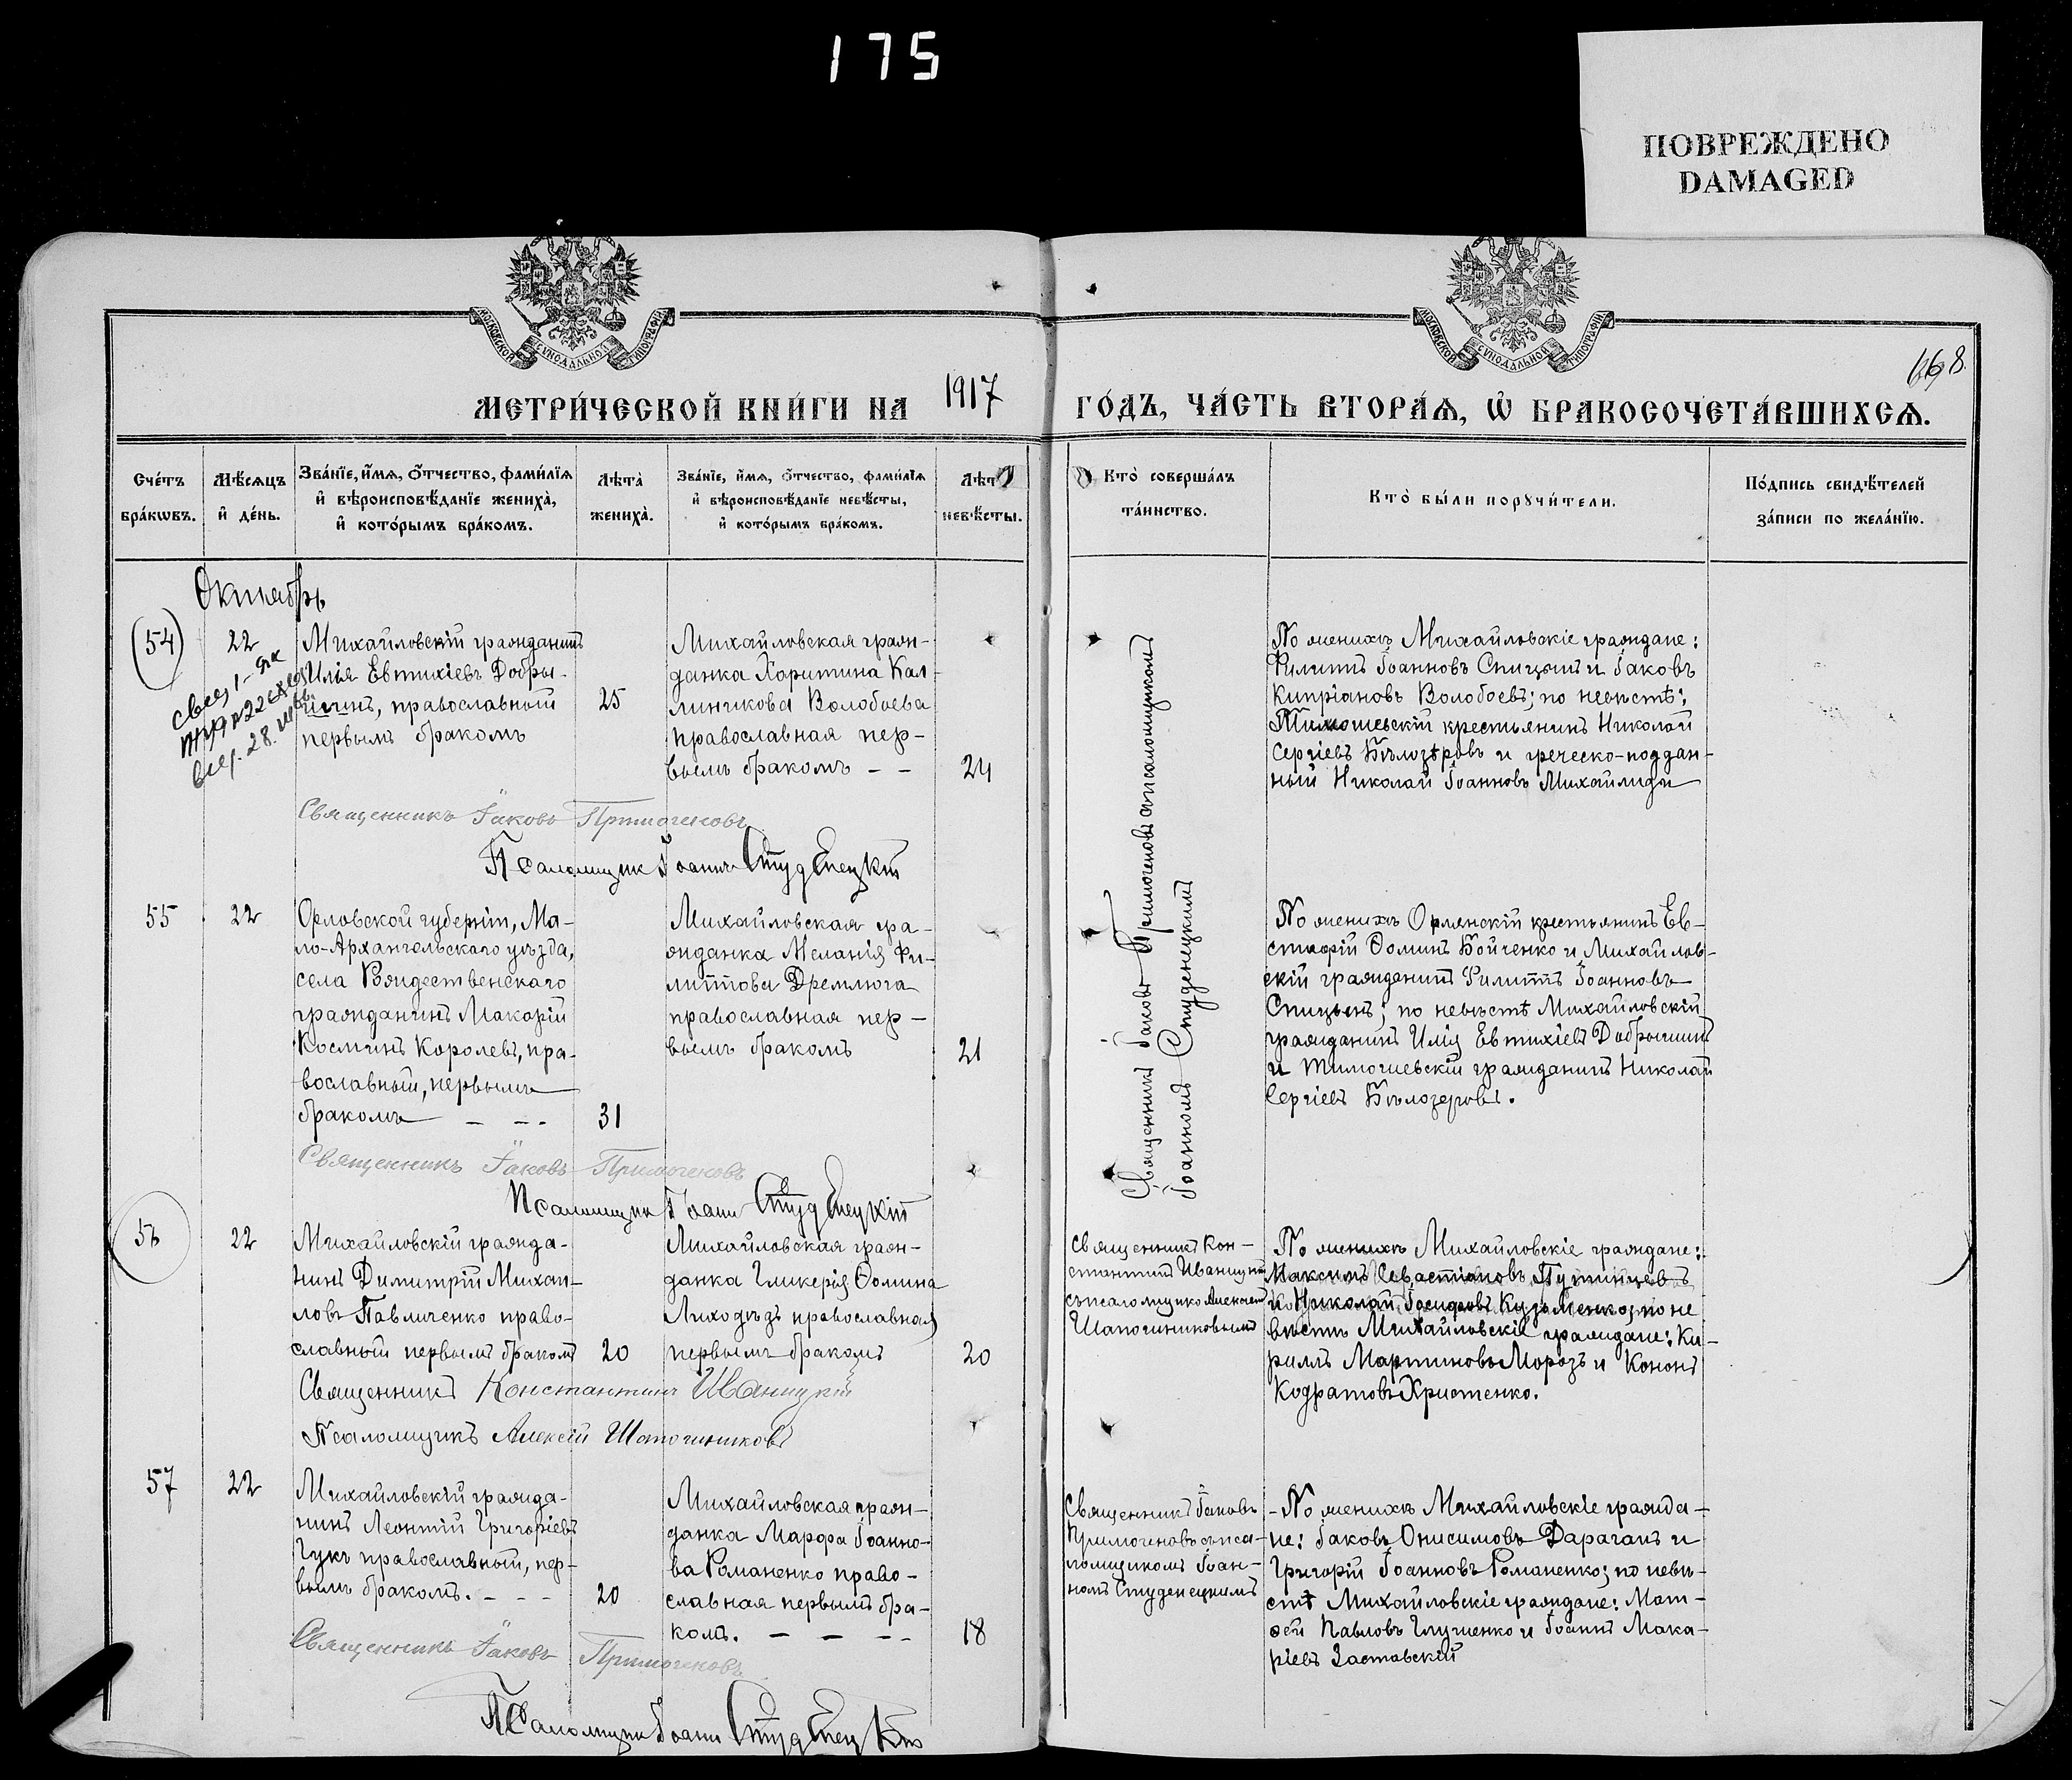 175
ПОВРЕЖДЕНО
DAMAGED
МОСКОВСКОЙ СѴНОДАЛЬНОЙ ТИПОГРАФІИ
МОСКОВСКОЙ СѴНОДАЛЬНОЙ ТИПОГРАФІИ
668
МЕТРИ́ЧЕСКОЙ КНИ́ГИ НА 1917 ГО́ДЪ, ЧА́СТЬ ВТОРА́Ѧ, Ѽ БРАКОСОЧЕТА́ВШИХСѦ.
Сче́тъ
бра́кѡвъ.
Мѣ́сяцъ
и҆ де́нь.
Зва́нїе, и҆́мѧ, ѻ҆́тчество, фами́лїѧ
и҆ вѣроисповѣ́данїе жениха̀,
и҆ кото́рымъ бра́комъ.
Лѣта̀
жениха̀.
Зва́нїе, и҆́мѧ, ѻ҆́тчество, фами́лїѧ
и҆ вѣроисповѣ́данїе невѣ́сты,
и҆ кото́рымъ бра́комъ.
Лѣт
невѣ́сты.
Кто̀ соверша́лъ
та́инство.
Кто̀ бы́ли порꙋчи́тели.
По́дпись свидѣ́телей
за́писи по жела́нїю.
Октябрь
54
22
Михайловскій гражданинъ
Илья Евтихіевъ Добры-
шинъ, православный
первымъ бракомъ
25
Михайловская граж-
данка Харитина Кал-
линикова Волобоева
православная пер-
вымъ бракомъ - -
24
По женихѣ Михайловскіе граждане:
Филиппъ Іоанновъ Спицынъ и Іаковъ
Кипріановъ Волобоевъ; по невѣстѣ:
Тимошевскій крестьянинъ Николай
Сергіевъ Бѣлозѣровъ и греческо-поддан-
ный Николай Іоанновъ Михайлиди
Священникъ Іаковъ Примогеновъ
Псаломщик Іоаннъ Студенецкій
Священникъ Іаковъ Примогеновъ съ псаломщикомъ
Іоанномъ Студенецкимъ
55
22
Орловской губерніи, Ма-
ло-Архангельскаго уѣзда,
села Рождественскаго
гражданинъ Макарій
Космичъ Королевъ, пра-
вославный, первымъ
бракомъ - - -
31
Михайловская гра-
жданка Меланія Фи-
липпова Дремлюга
православная пер-
вымъ бракомъ
21
По женихѣ Орлянскій крестьянинъ Ев-
стафій Ѳоминъ Бойченко и Михайлов-
скій гражданинъ Филиппъ Іоанновъ
Спицынъ; по невѣстѣ Михайловскій
гражданинъ Илія Евтихіевъ Добрышинъ
и Тимошевскій гражданинъ Николай
Сергіевъ Бѣлозеровъ.
Священникъ Іаковъ Примогеновъ
Псаломщик Іоанн Студенецкій
56
22
Михайловскій гражда-
нинъ Димитрій Михаи-
ловъ Павличенко право-
славный первымъ бракомъ
20
Михайловская граж-
данка Гликерія Ѳомина
Лиходѣдъ православная
первымъ бракомъ
20
Священникъ Кон-
стантинъ Иваницкій
съ псаломщико Алексѣем
Шапочниковымъ
По женихѣ Михайловскіе граждане:
Максимъ Севастіановъ Путинцевъ
и Николай Іосифовъ Кузьменко; по не
вѣстѣ Михайловскіе граждане: Ки-
риллъ Мартиновъ Морозъ и Кононъ
Кодратовъ Христенко.
Священникъ Константинъ Иваницкій
Псаломщикъ Алексій Шапочниковъ
57
22
Михайловскій гражда-
нинъ Леонтій Григоріевъ
Гукъ православный, пер-
вымъ бракомъ. - - -
20
Михайловская граж-
данка Марфа Іоанно-
ва Романенко право-
славная первымъ бра-
комъ. - - - -
18
Священникъ Іаковъ
Примогеновъ съ пса-
ломщикомъ Іоан-
номъ Студенецкимъ
- По женихѣ Михайловскіе гражда-
не: Іаковъ Онисимовъ Дараганъ и
Григорій Іоанновъ Романенко; по невѣ-
стѣ Михайловскіе граждане: Мат-
ѳей Павловъ Глущенко и Іоаннъ Мака-
ріевъ Заставскій
Священникъ Іаковъ Примогеновъ
Псаломщик Іоанн Студенецкій